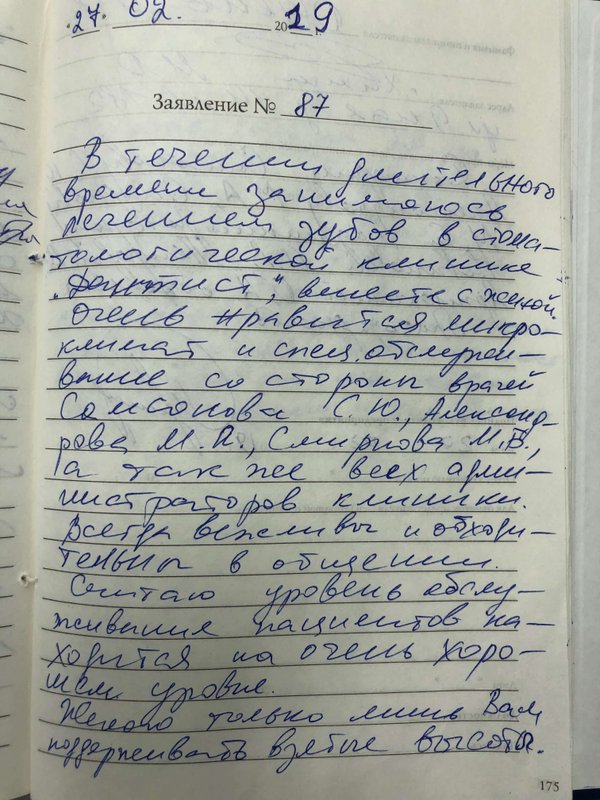 27. 02. 2019
Заявление № 87
В течении длительного
времени занимаюсь
лечением зубов в стома-
тологической клинике
"Дантист", вместе с женой.
Очень нравится микро-
климат и спец. обслужи-
вание со стороны врачей
Самсонова С.Ю., Александ-
рова М.А., Смирнова М.В.,
а так же всех адми-
нистраторов клиники.
Всегда вежливы и обходи-
тельны в общении.
Считаю уровень обслу-
живания пациентов на-
ходится на очень хоро-
шем уровне.
Желаю только лишь Вам
поддерживать взятые высоты.
175